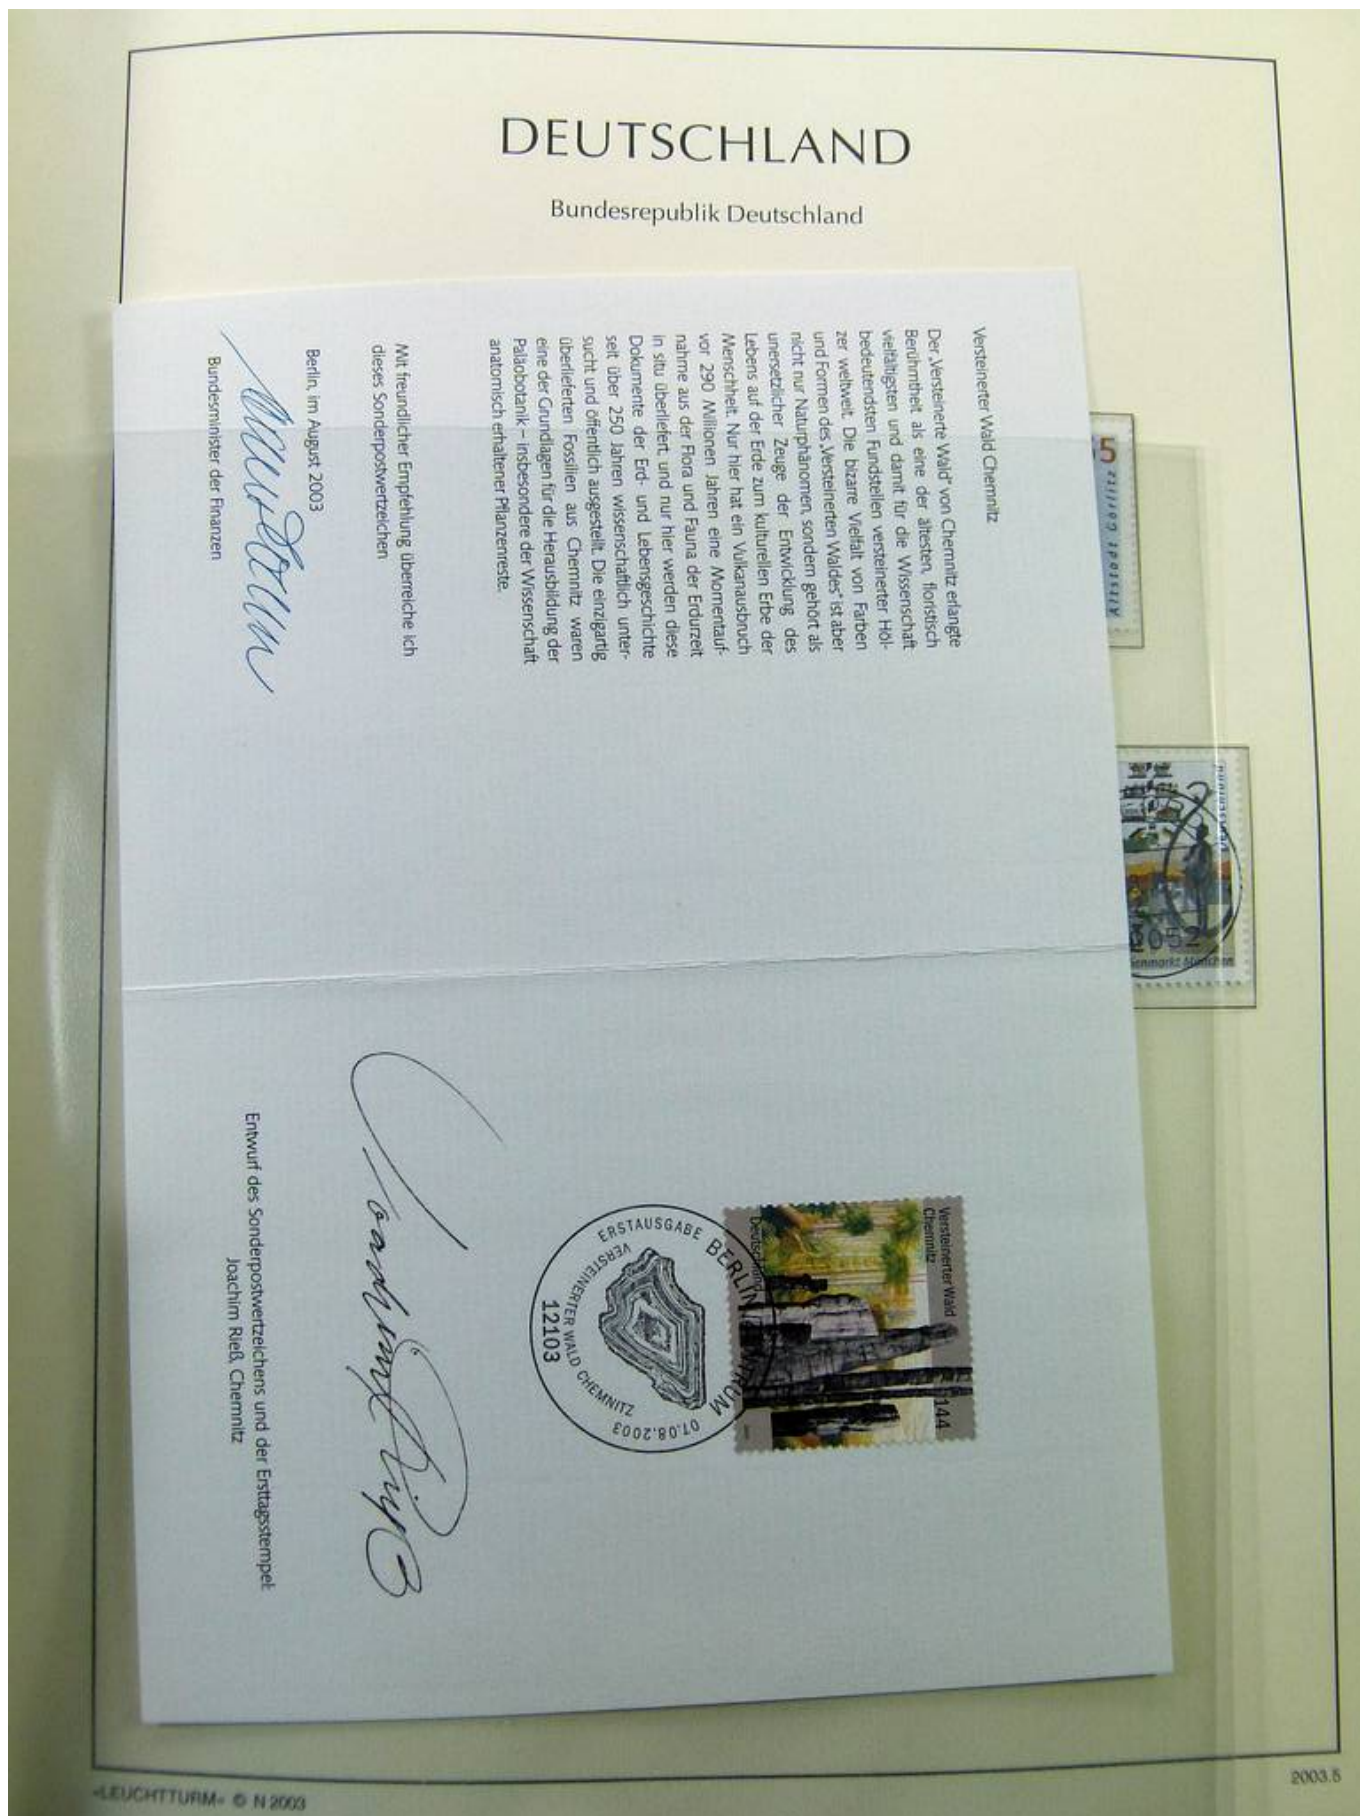 DEUTSCHLAND
Bundesrepublik Deutschland
Versteinerter Wald Chemnitz
Der „Versteinerte Wald“ von Chemnitz erlangte
Berühmtheit als eine der ältesten, floristisch
vielfältigsten und damit für die Wissenschaft
bedeutendsten Fundstellen versteinerter Höl-
zer weltweit. Die bizarre Vielfalt von Farben
und Formen des „Versteinerten Waldes“ ist aber
nicht nur Naturphänomen, sondern gehört als
unersetzlicher Zeuge der Entwicklung des
Lebens auf der Erde zum kulturellen Erbe der
Menschheit. Nur hier hat ein Vulkanausbruch
vor 290 Millionen Jahren eine Momentauf-
nahme aus der Flora und Fauna der Erdurzeit
in situ überliefert, und nur hier werden diese
Dokumente der Erd- und Lebensgeschichte
seit über 250 Jahren wissenschaftlich unter-
sucht und öffentlich ausgestellt. Die einzigartig
überlieferten Fossilien aus Chemnitz waren
eine der Grundlagen für die Herausbildung der
Paläobotanik – insbesondere der Wissenschaft
anatomisch erhaltener Pflanzenreste.
Mit freundlicher Empfehlung überreiche ich
dieses Sonderpostwertzeichen
Berlin, im August 2003
Bundesminister der Finanzen
Versteinerter Wald
Chemnitz
144
Deutschland
ERSTAUSGABE BERLIN
07.08.2003
VERSTEINERTER WALD CHEMNITZ
12103
Joachim Rieß
Entwurf des Sonderpostwertzeichens und der Ersttagsstempel:
Joachim Rieß, Chemnitz
5
Altstadt Görlitz
»LEUCHTTURM« © N 2003
2003.5